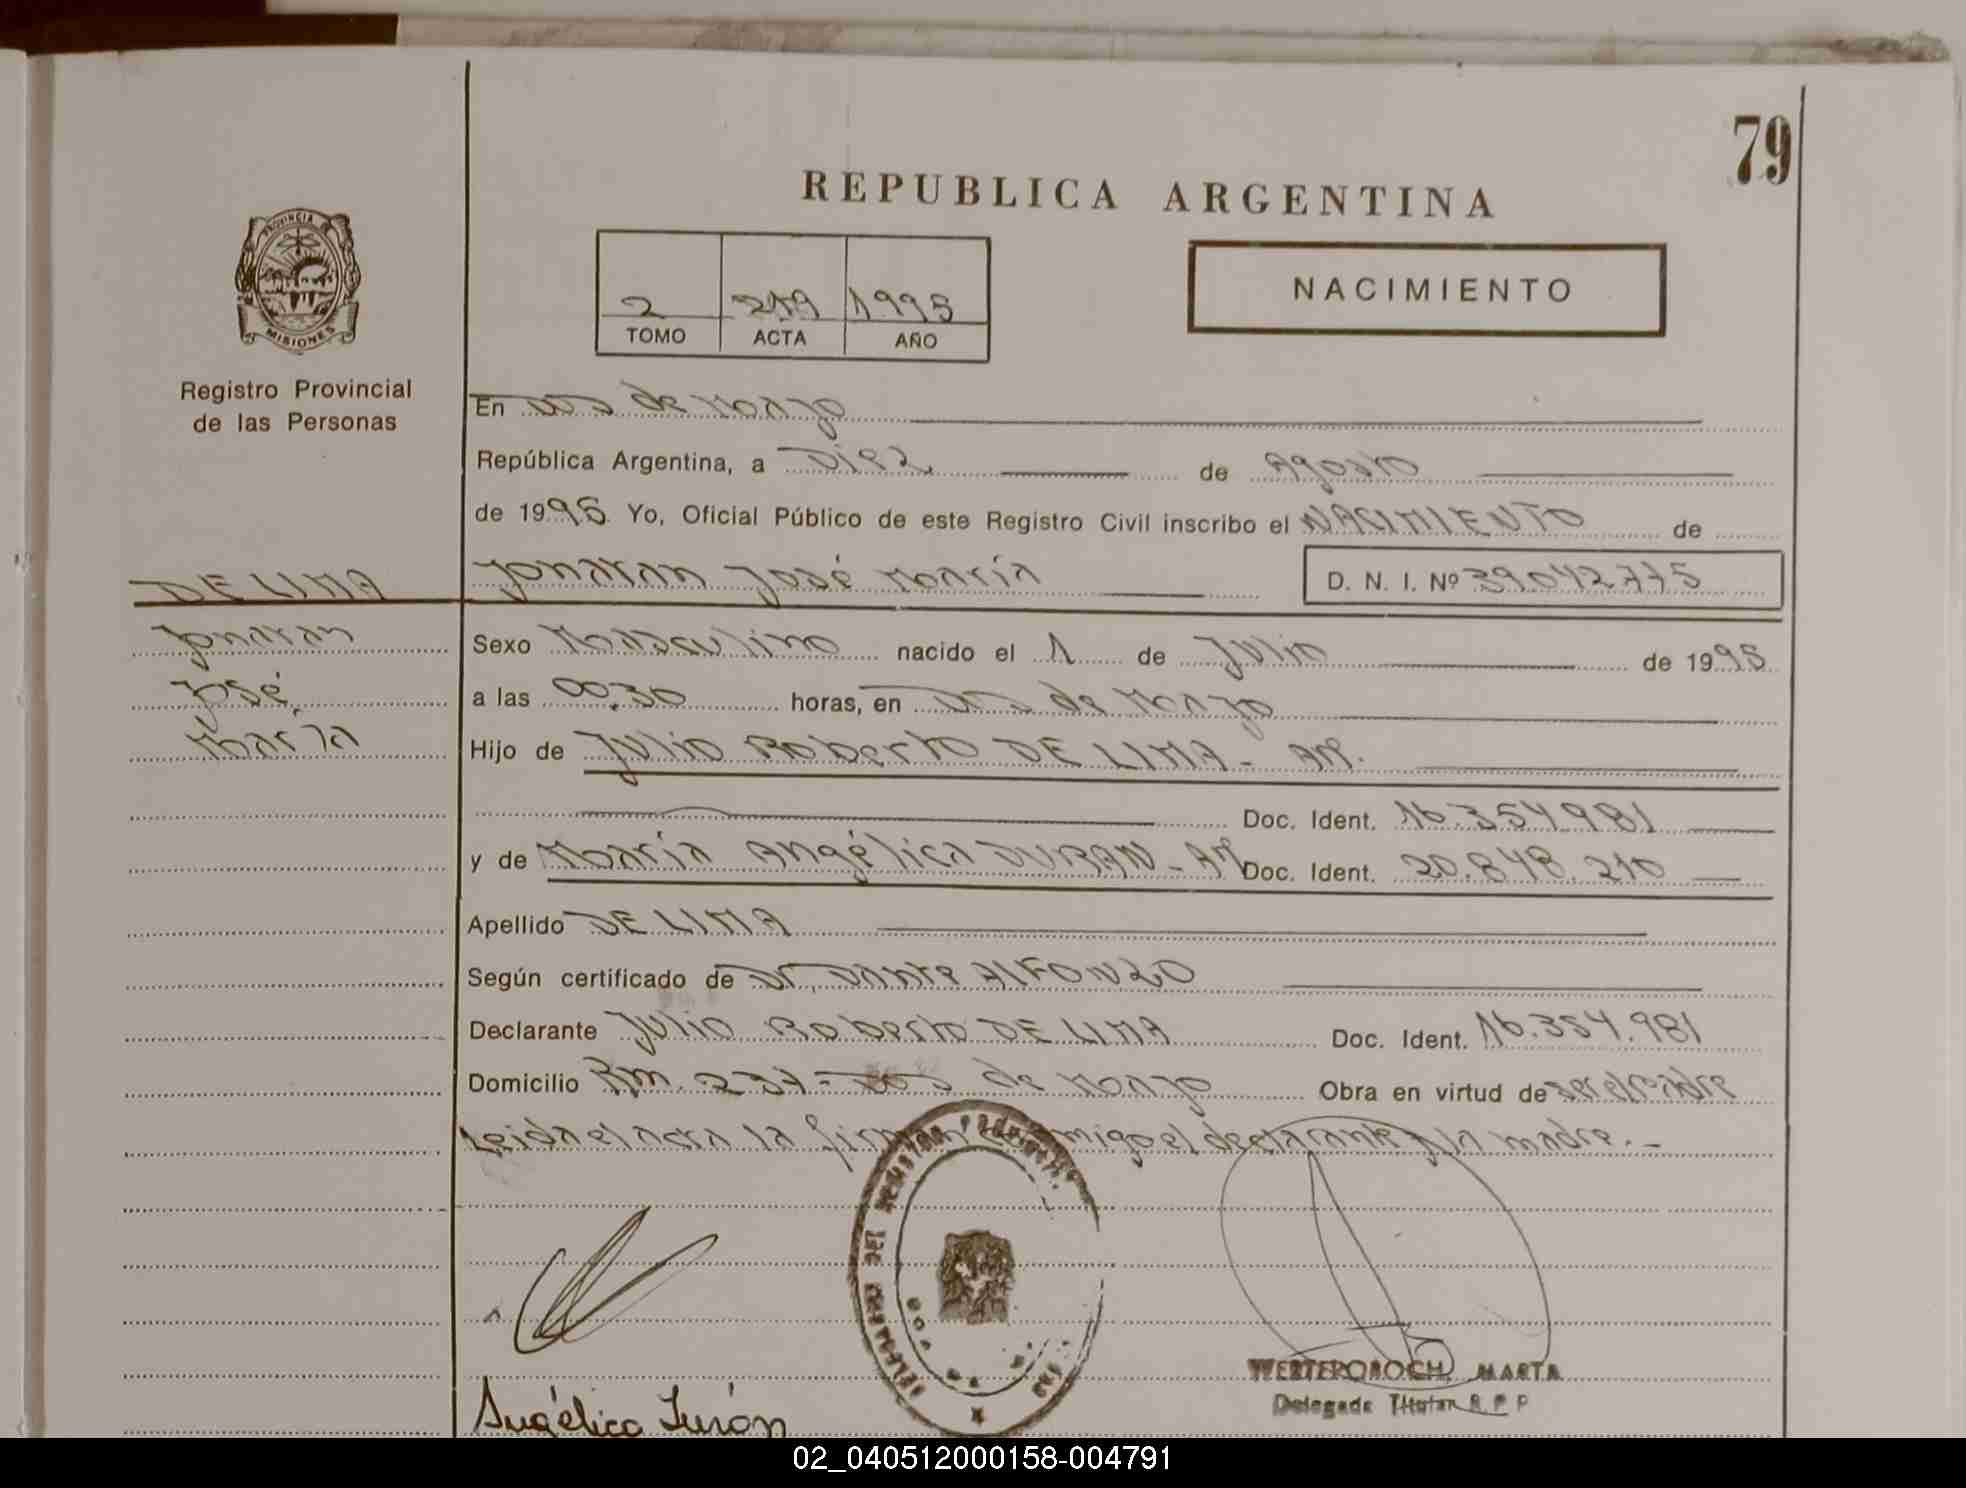 79
REPUBLICA ARGENTINA
PROVINCIA
MISIONES
Registro Provincial
de las Personas
2 219 1995
TOMO ACTA AÑO
NACIMIENTO
En Dos de Mayo
República Argentina, a Diez de Agosto
de 1995. Yo, Oficial Público de este Registro Civil inscribo el NACIMIENTO de
DE LIMA
Jonatan José María
D. N. I. Nº 39.042.775
Jonatan
José
María
Sexo Masculino nacido el 1 de Julio de 1995
a las 00:30 horas, en Dos de Mayo
Hijo de Julio Roberto DE LIMA - Ar.
Doc. Ident. 16.354.981
y de María Angélica DURAN - Ar Doc. Ident. 20.848.210
Apellido DE LIMA
Según certificado de Dr. Dante ALFONZO
Declarante Julio Roberto DE LIMA Doc. Ident. 16.354.981
Domicilio Km. 237 - Dos de Mayo Obra en virtud de ser el padre
Leida el acta la firman conmigo el declarante y la madre. -
WERTEROBOCH, MARTA
Delegada Titular R P P
Angélica Durán
02_040512000158-004791